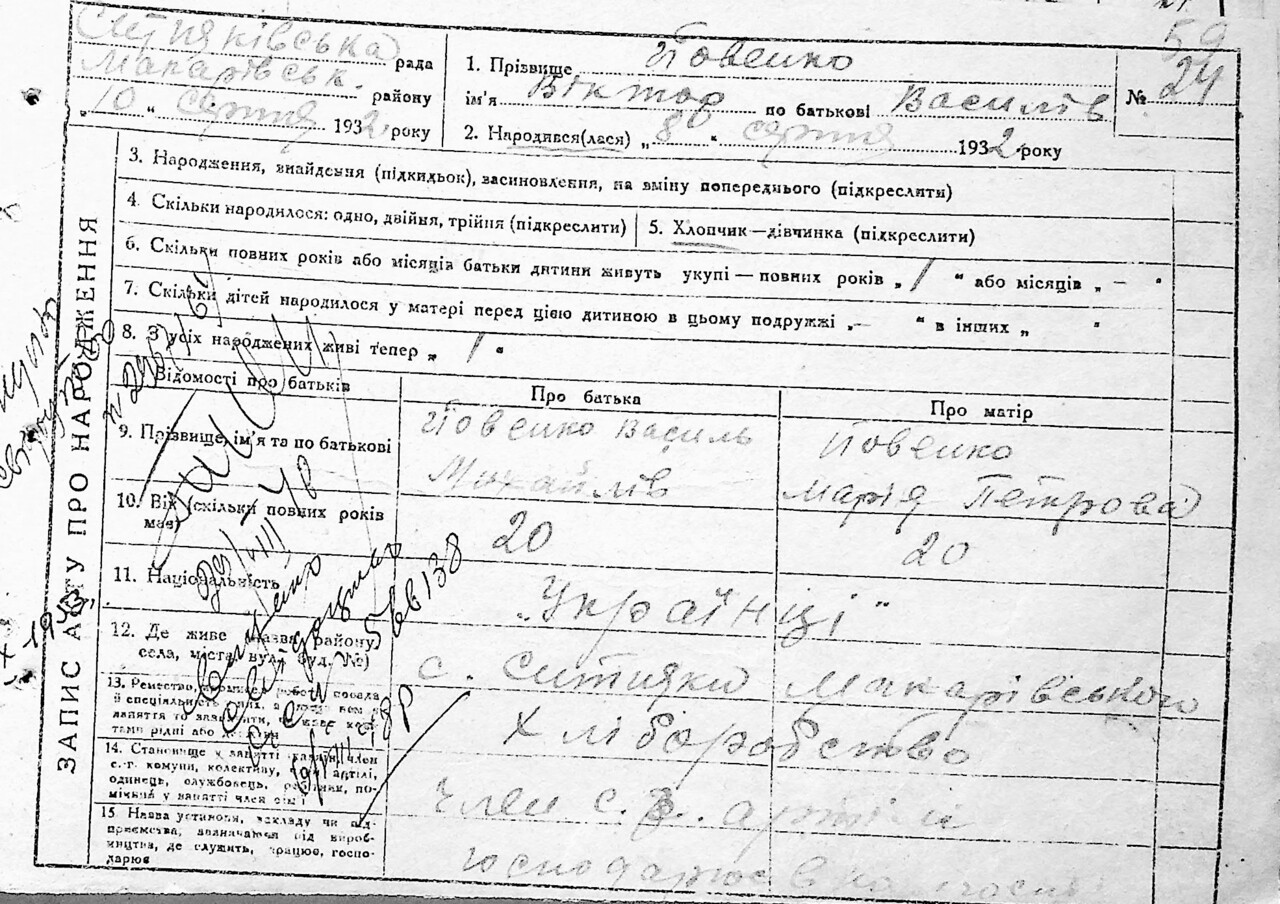 59
Ситняківська рада
Макарівськ. району
„10“ серпня 1932 року
1. Прізвище Йовенко
ім'я Віктор по батькові Василів
2. Народився(лася) „8“ серпня 1932 року
№ 24
ЗАПИС АКТУ ПРО НАРОДЖЕННЯ
3. Народження, знайдення (підкидьок), засиновлення, на зміну попереднього (підкреслити)
4. Скільки народилося: одно, двійня, трійня (підкреслити)
5. Хлопчик—дівчинка (підкреслити)
6. Скільки повних років або місяців батьки дитини живуть укупі — повних років „ / “ або місяців „ — “
7. Скільки дітей народилося у матері перед цією дитиною в цьому подружжі „ — “ в інших „ “
8. З усіх народжених живі тепер „ / “
Відомості про батьків
Про батька
Про матір
9. Прізвище, ім'я та по батькові
Йовенко Василь
Михайлів
Йовенко
Марія Петрова
10. Вік (скільки повних років
має)
20
20
11. Національність
„Українці“
12. Де живе (назва району,
села, міста, вул., буд. №)
с. Ситняки Макарівського
13. Ремество,
Хліборобство
14. Становище у занятті
с.-г. комуни, колективу, артілі,
одинець, службовець,
член с. г. артілі
15 Назва установи, закладу чи під-
приємства, зазначаючи рід вироб-
ництва, де служить, працює, госпо-
дарює
господарює в
566138
1943